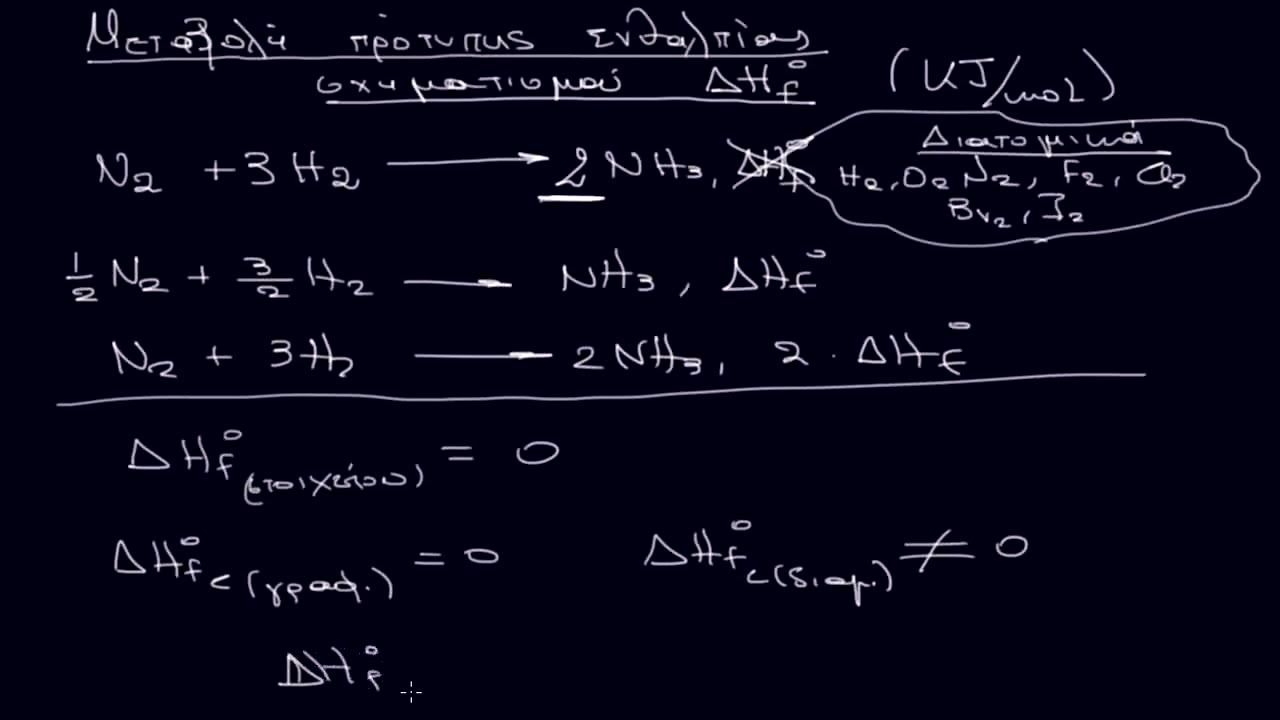 Μεταβολή πρότυπης ενθαλπίας
σχηματισμού ΔHf° (KJ/mol)
N2 + 3H2 → 2NH3, ΔHf°
Διατομικά
H2, O2 N2, F2, Cl2
Br2, I2
1/2 N2 + 3/2 H2 → NH3, ΔHf°
N2 + 3H2 → 2NH3, 2 · ΔHf°
ΔHf° (στοιχείου) = 0
ΔHf° C(γραφ.) = 0 ΔHf° C(διαμ.) ≠ 0
ΔHf°